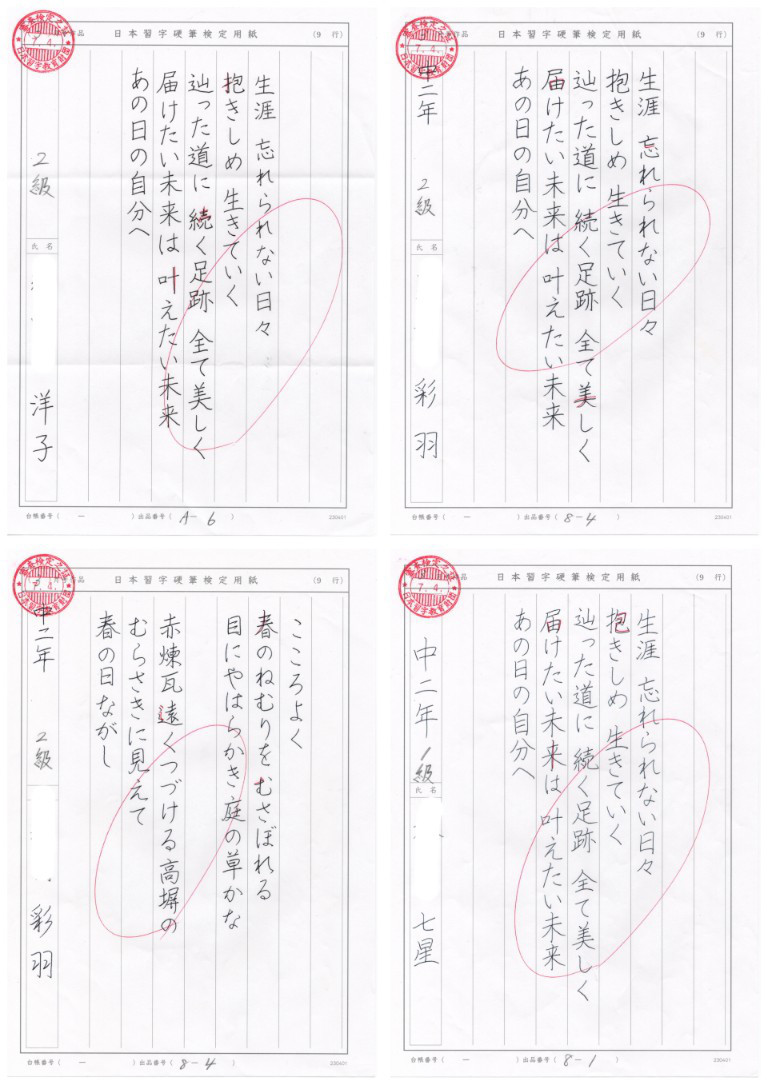 日本習字硬筆検定用紙
(9 行)
生涯 忘れられない日々
抱きしめ 生きていく
辿った道に 続く足跡 全て美しく
届けたい未来は 叶えたい未来
あの日の自分へ
2級
氏名
洋子
台帳番号( ー )出品番号( A-6 )
230401
日本習字硬筆検定用紙
(9 行)
生涯 忘れられない日々
抱きしめ 生きていく
辿った道に 続く足跡 全て美しく
届けたい未来は 叶えたい未来
あの日の自分へ
中二年 2級
氏名
彩羽
台帳番号( ー )出品番号( 8-4 )
230401
日本習字硬筆検定用紙
(9 行)
こころよく
春のねむりを むさぼれる
目にやはらかき 庭の草かな
赤煉瓦 遠くつづける高塀の
むらさきに見えて
春の日ながし
中二年 2級
氏名
彩羽
台帳番号( ー )出品番号( 8-4 )
230401
日本習字硬筆検定用紙
(9 行)
生涯 忘れられない日々
抱きしめ 生きていく
辿った道に 続く足跡 全て美しく
届けたい未来は 叶えたい未来
あの日の自分へ
中二年 1級
氏名
七星
台帳番号( ー )出品番号( 8-1 )
230401